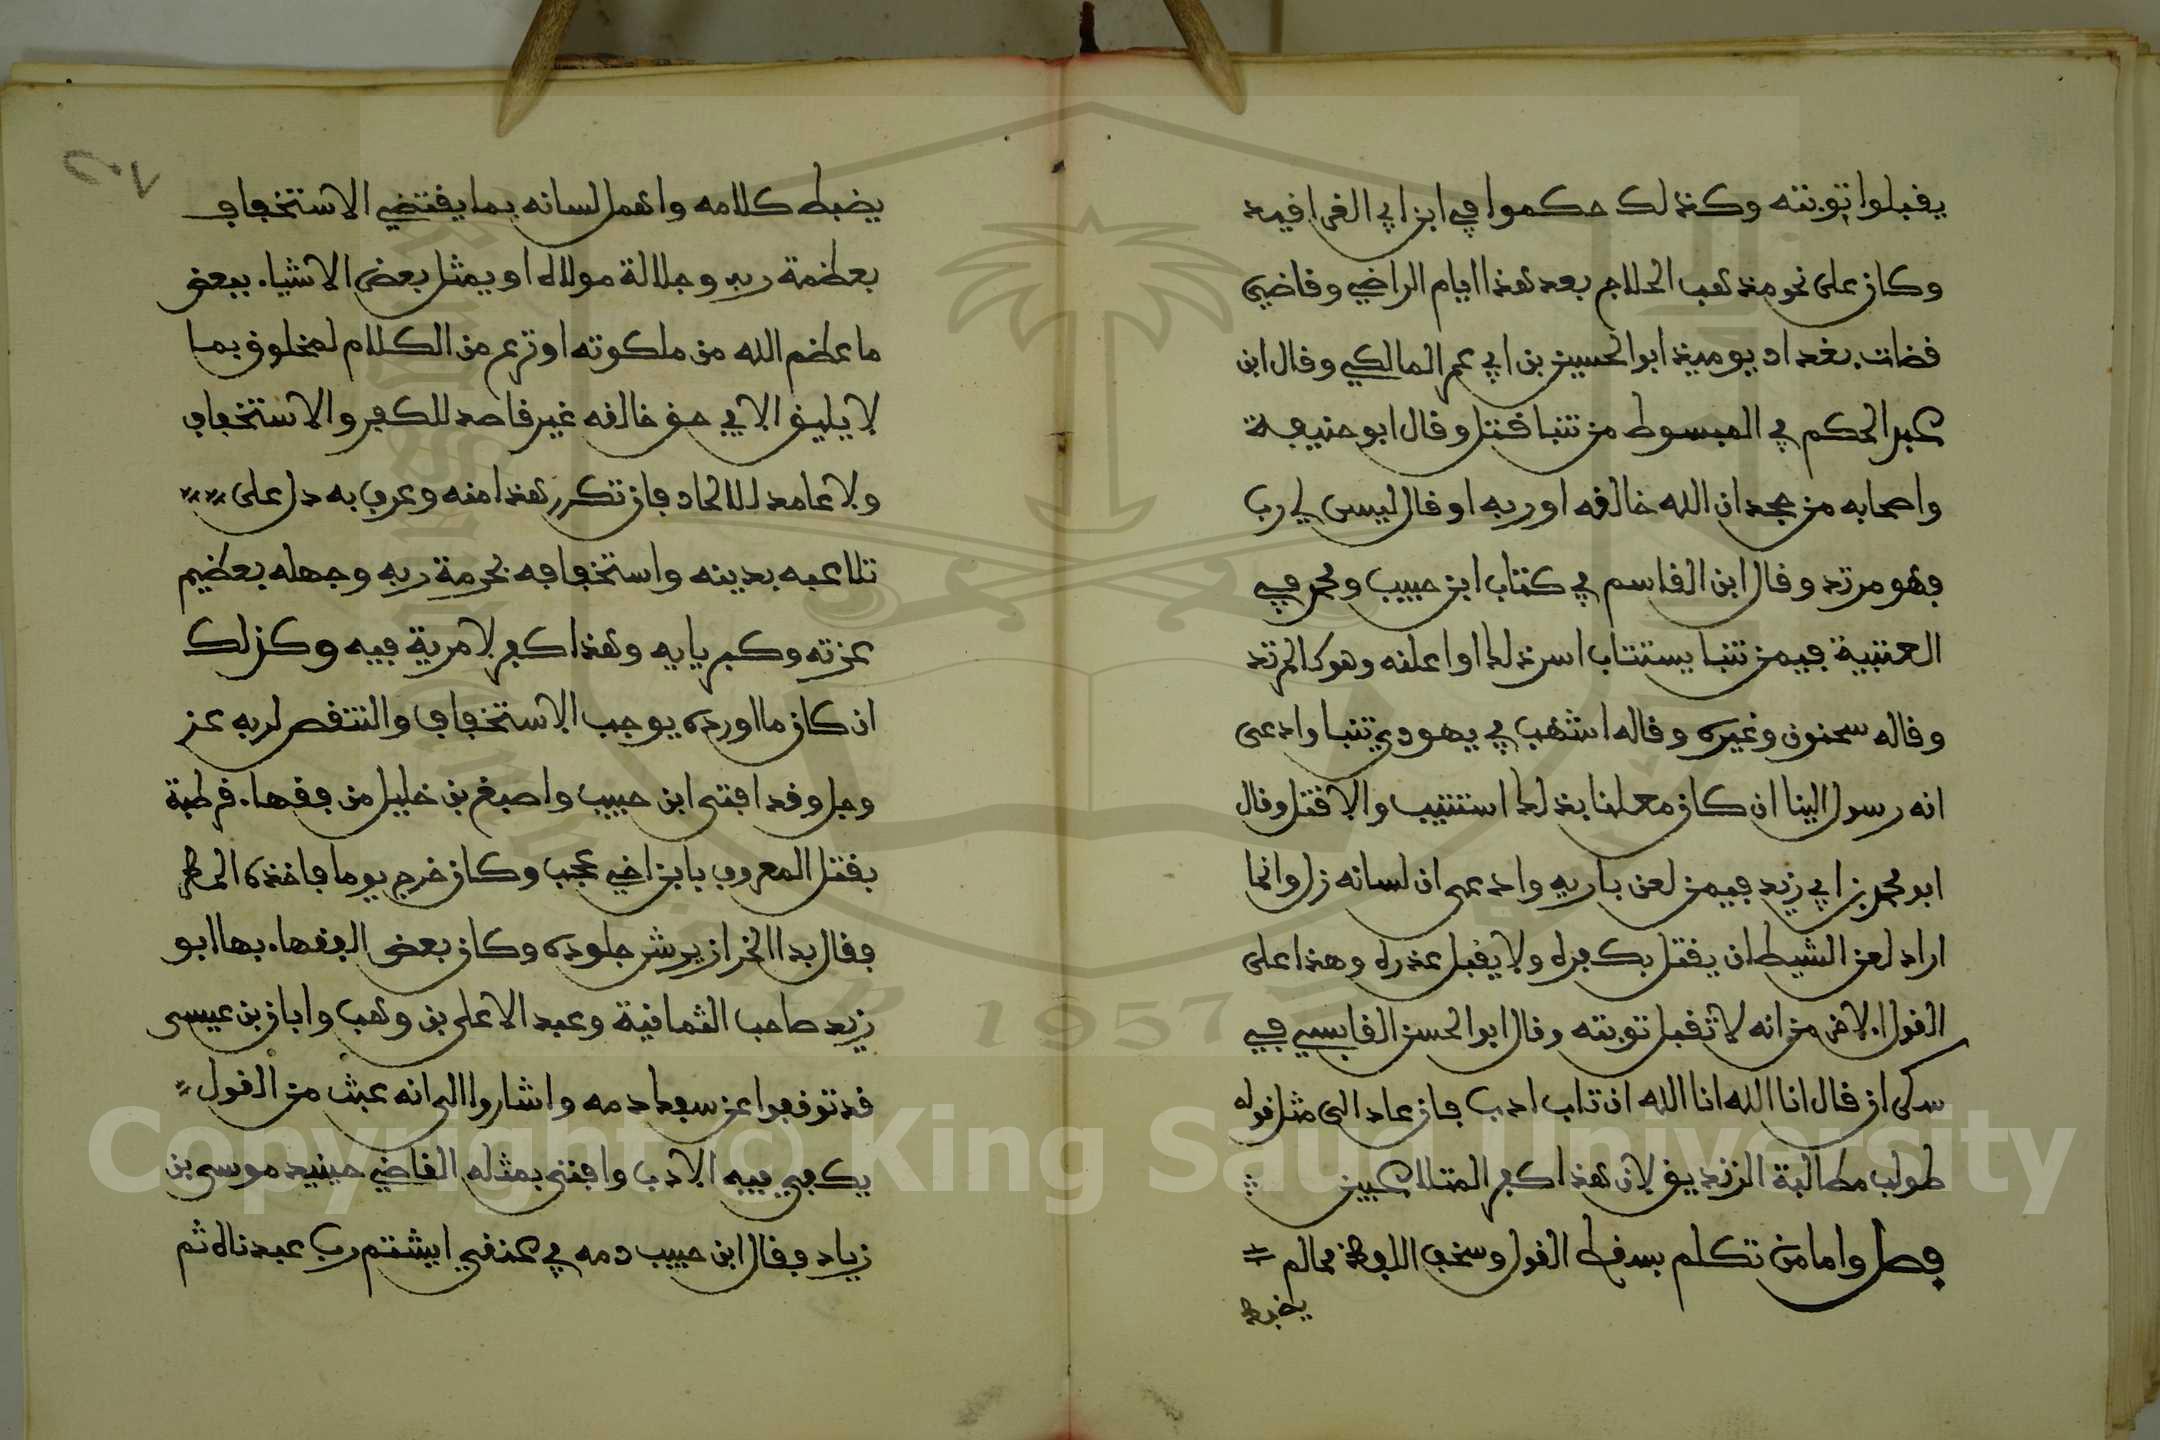 يقبلوا توبته وكذلك حكموا في ابن ابي الغرافيد
وكان على نحو مذهب الحلاج بعد هذا ايام الراضي وقاضي
قضات بغداد يوميذ ابو الحسين بن ابي عمر المالكي وقال ابن
عبد الحكم في المبسوط من تنبا قتل وقال ابو حنيفة
واصحابه من جحد ان الله خالقه او ربه او قال ليس لي رب
فهو مرتد وقال ابن القاسم في كتاب ابن حبيب ومحمد في
العتبية فيمن تنبا يستتاب اسر ذلك او اعلنه وهو كالمرتد
وقاله سحنون وغيره وقاله اشهب في يهودي تنبا وادعى
انه رسول الينا ان كان معلنا بذلك استتيب والا قتل وقال
ابو محمد بن ابي زيد فيمن لعن باريه وادعى ان لسانه زل وانما
اراد لعن الشيطان يقتل بكفره ولا يقبل عذره وهذا على
القول الاخر من انه لا تقبل توبته وقال ابو الحسن القابسي في
سكران قال انا الله انا الله ان تاب ادب فان عاد الى مثل قوله
طولب مطالبة الزنديق لان هذا كفر المتلاعبين
فصل واما من تكلم بسقط القول وسخف اللفظ ممن لم
يضبط
يضبط كلامه واهمل لسانه بما يقتضي الاستخفاف
بعظمة ربه وجلالة مولاه او يمثل بعض الاشياء ببعض
ما عظم الله من ملكوته او نزع من الكلام لمخلوق بما
لا يليق الا في حق خالقه غير قاصد للكفر والاستخفاف
ولا عامد للالحاد فان تكرر هذا منه وعرف به دل على
تلاعبه بدينه واستخفافه بحرمة ربه وجهله بعظيم
عزته وكبريايه وهذا كفر لا مرية فيه وكذلك
ان كان ما اورده يوجب الاستخفاف والتنقص لربه عز
وجل وقد افتى ابن حبيب واصبغ بن خليل من فقهاء قرطبة
بقتل المعروف بابن اخي عجب وكان خرج يوما فاخذه المطر
فقال بدا الخراز يرش جلوده وكان بعض الفقهاء بها ابو
زيد صاحب الثمانية وعبد الاعلى بن وهب وابان بن عيسى
قد توقفوا عن سفك دمه واشاروا الى انه عبث من القول
يكفي فيه الادب وافتى بمثله القاضي حينيد موسى بن
زياد فقال ابن حبيب دمه في عنقي ايشتم رب عبدناه ثم